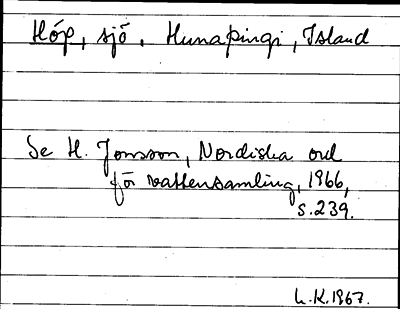 Hóp, sjö. Hunaþingi, Island
Se H. Jonsson, Nordiska ord
för vattensamling, 1966,
s.239.
L.K.1967.